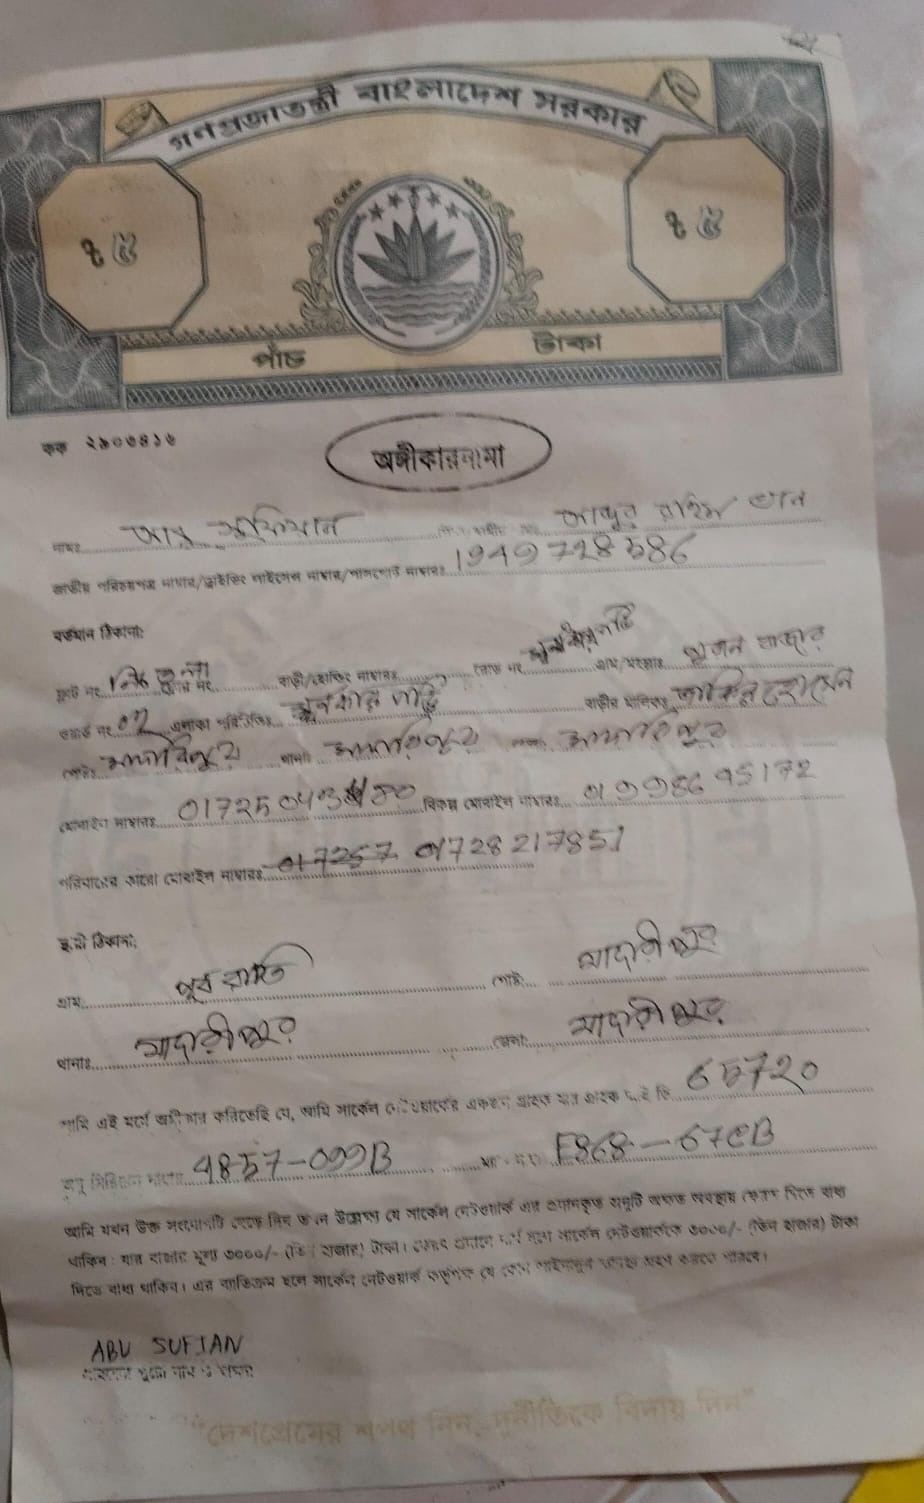 গণপ্রজাতন্ত্রী বাংলাদেশ সরকার
৳ ৫ ৳ ৫
পাঁচ টাকা
কক ২৯০৩৪১৬
অঙ্গীকারনামা
নামঃ আবু সুফিয়ান আব্দুর রহিম খান
জাতীয় পরিচয়পত্র নাম্বার/ড্রাইভিং লাইসেন্স নাম্বার/পাসপোর্ট নাম্বারঃ 1949728586
বর্তমান ঠিকানা:
ফ্লাট নং নিচ তলা বাড়ী/হোল্ডিং নাম্বারঃ রোড নং গ্রাম/মহল্লাঃ পুরান বাজার
ওয়ার্ড নং 02 এলাকা পরিচিতিঃ স্বর্নকার পট্টি বাড়ীর মালিকঃ জাকির হোসেন
পোষ্টঃ মাদারিপুর থানাঃ মাদারিপুর জেলাঃ মাদারিপুর
মোবাইল নাম্বারঃ বিকল্প মোবাইল নাম্বারঃ 01998695172
পরিবারের কারো মোবাইল নাম্বারঃ 01728217851
স্থায়ী ঠিকানা:
গ্রামঃ পূর্ব রাস্তি পোষ্টঃ মাদারীপুর
থানাঃ মাদারীপুর জেলা: মাদারীপুর
আমি এই মর্মে অঙ্গীকার করিতেছি যে, আমি সার্কেল নেটওয়ার্কের একজন গ্রাহক যার গ্রাহক আই ডি 65720
অনু সিরিয়াল নাম্বার 4857-099B F868-67CB
আমি যখন উক্ত সংযোগটি ছেড়ে দিব তখন উল্লেখ্য যে সার্কেল নেটওয়ার্ক এর প্রদানকৃত অনুটি অক্ষত অবস্থায় ফেরত দিতে বাধ্য
থাকিব। যার বাজার মূল্য ৩০০০/- (তিন হাজার) টাকা। ফেরত প্রদানে ব্যর্থ হলে সার্কেল নেটওয়ার্ককে ৩০০০/- (তিন হাজার) টাকা
দিতে বাধ্য থাকিব। এর ব্যতিক্রম হলে সার্কেল নেটওয়ার্ক কর্তৃপক্ষ যে কোন আইনানুগ ব্যবস্থা গ্রহণ করতে পারবে।
ABU SUFIAN
"দেশপ্রেমের শপথ নিন, দুর্নীতিকে বিদায় দিন"